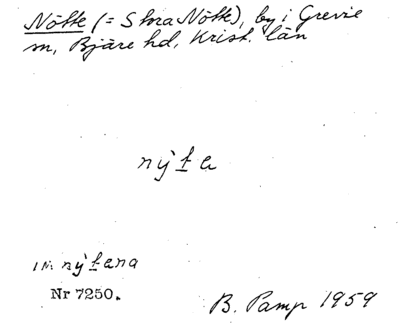 Nötte (= Stora Nötte), by i Grevie
sn, Bjäre hd, Krist. län
nỳt̠a
nỳt̠ana
Nr 7250.
B. Pamp 1959